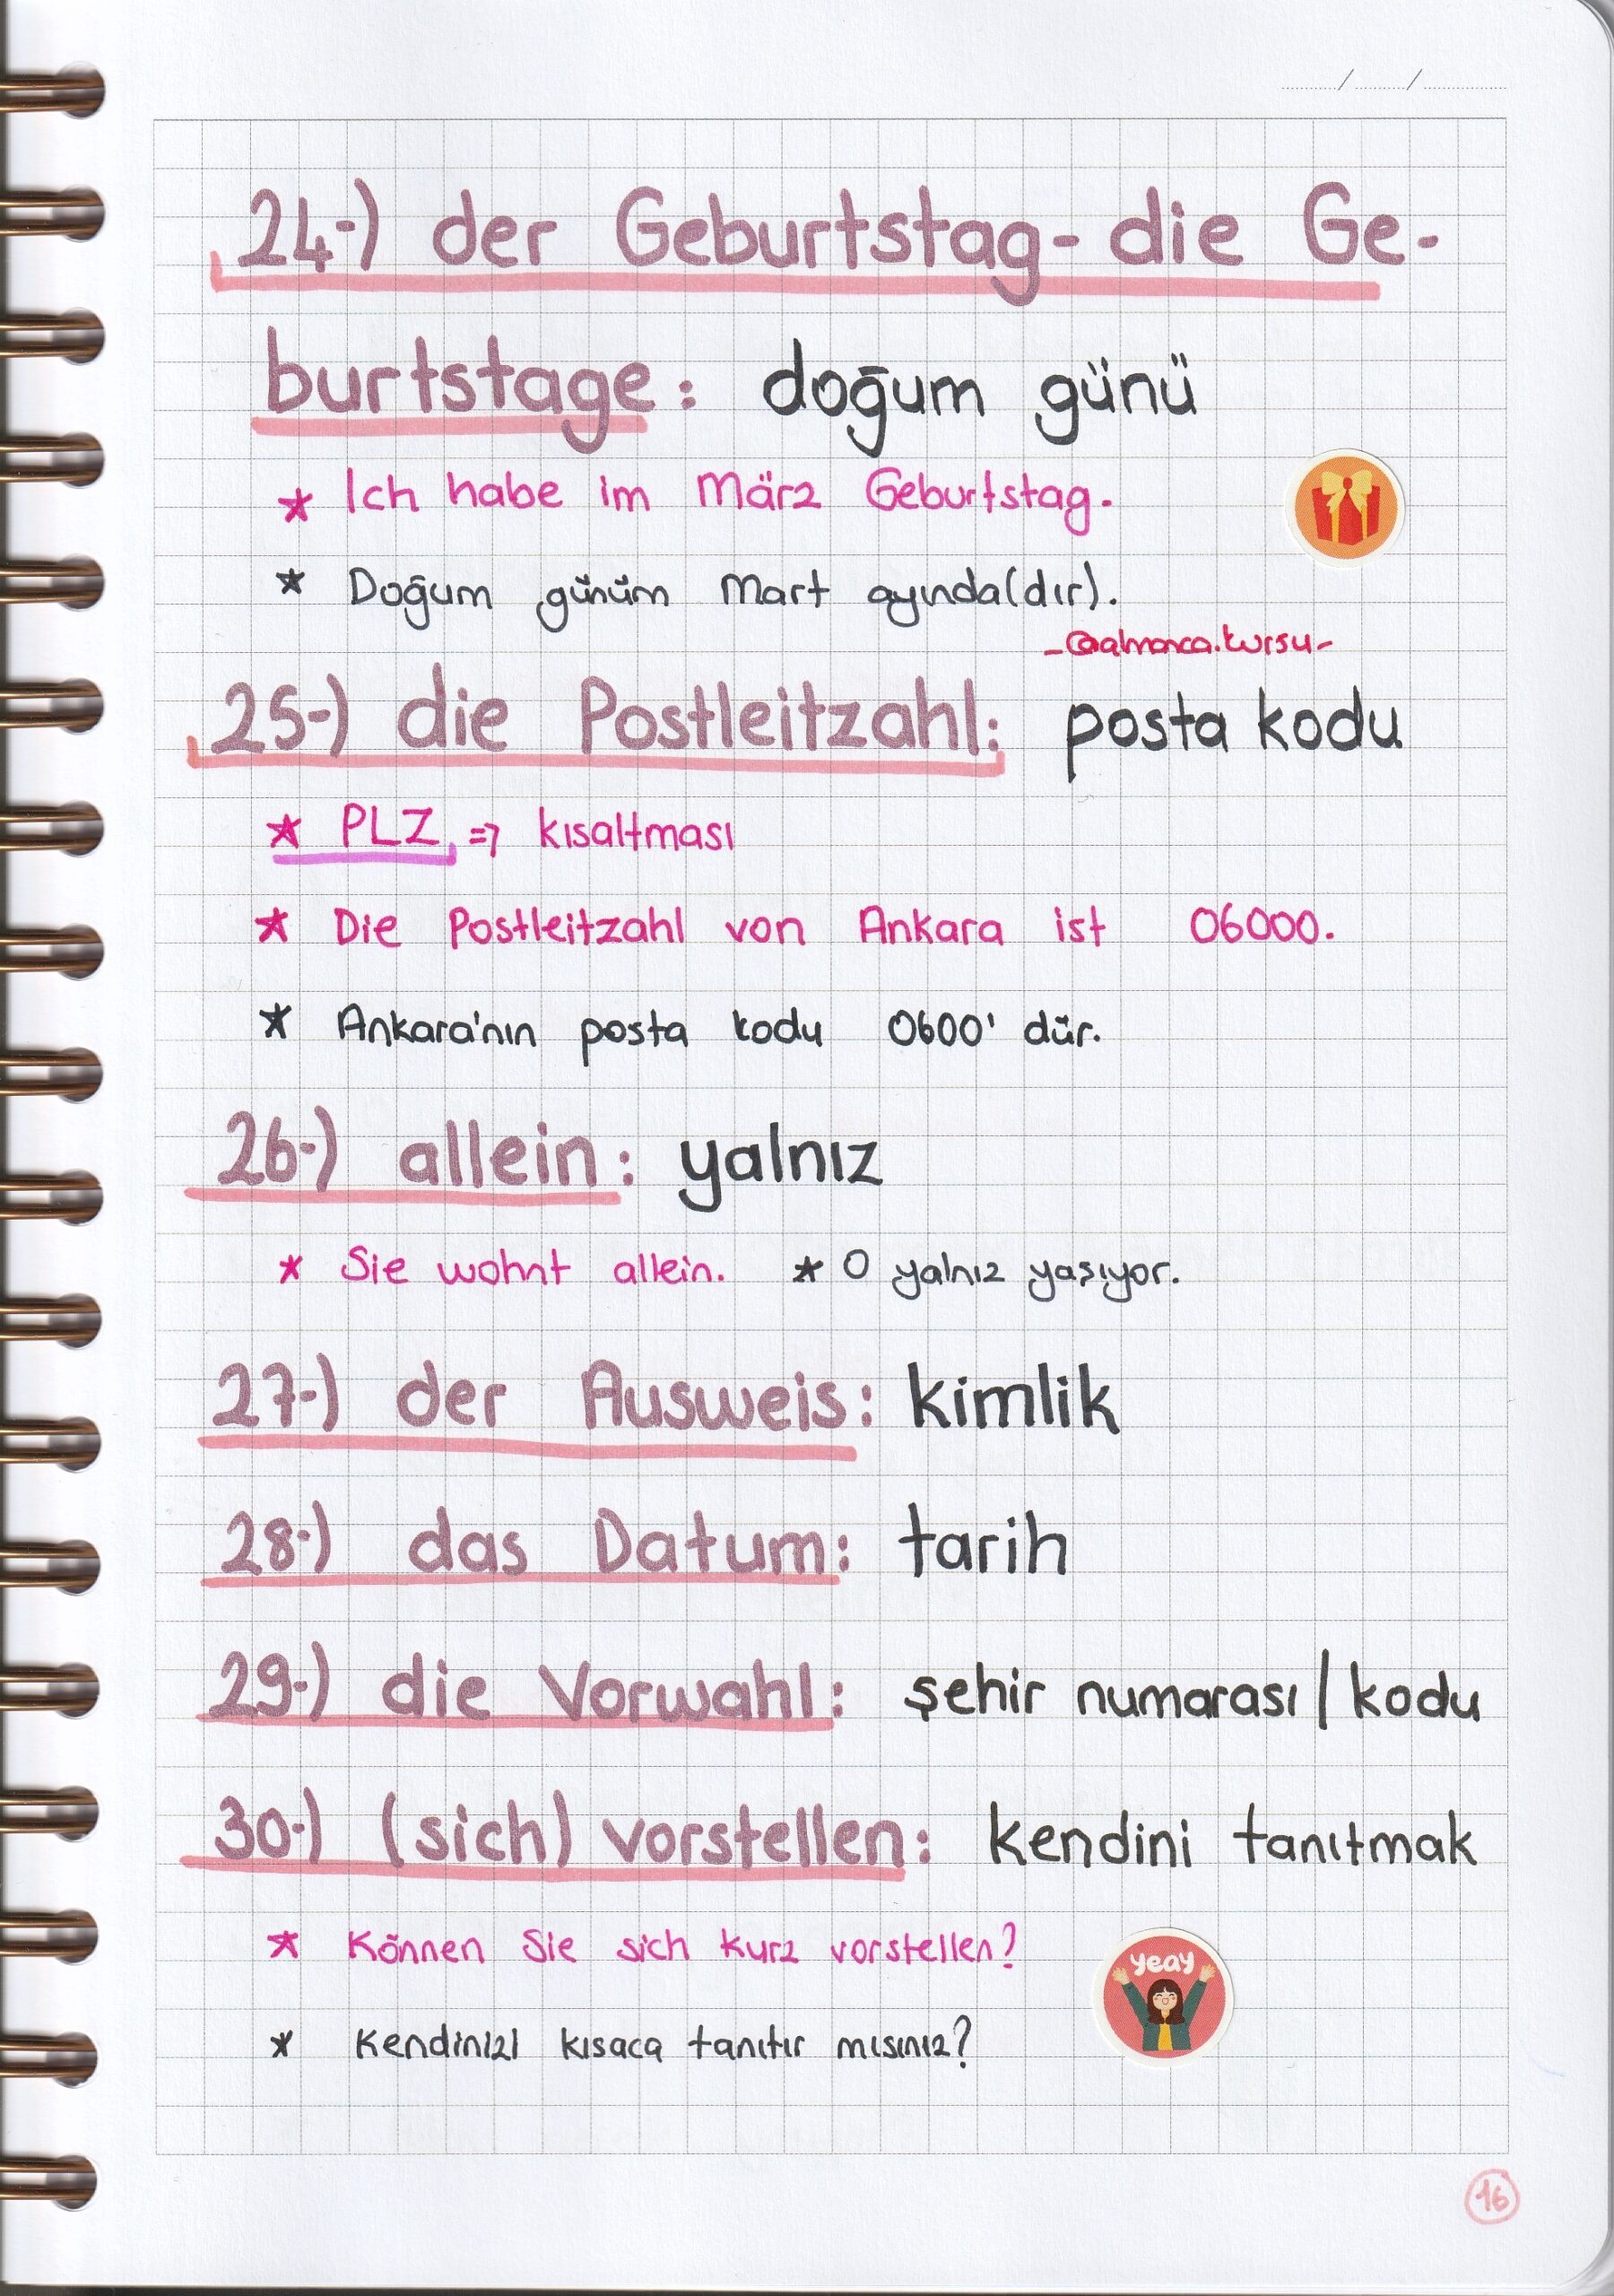 24-) der Geburtstag - die Ge-
burtstage: doğum günü
* Ich habe im März Geburtstag.
* Doğum günüm Mart ayında(dır).
-@almanca.kursu-
25-) die Postleitzahl: posta kodu
* PLZ => kısaltması
* Die Postleitzahl von Ankara ist 06000.
* Ankara'nın posta kodu 0600' dür.
26-) allein: yalnız
* Sie wohnt allein. * O yalnız yaşıyor.
27-) der Ausweis: kimlik
28-) das Datum: tarih
29-) die Vorwahl: şehir numarası / kodu
30-) (sich) vorstellen: kendini tanıtmak
* Können Sie sich kurz vorstellen?
yeay
* Kendinizi kısaca tanıtır mısınız?
16